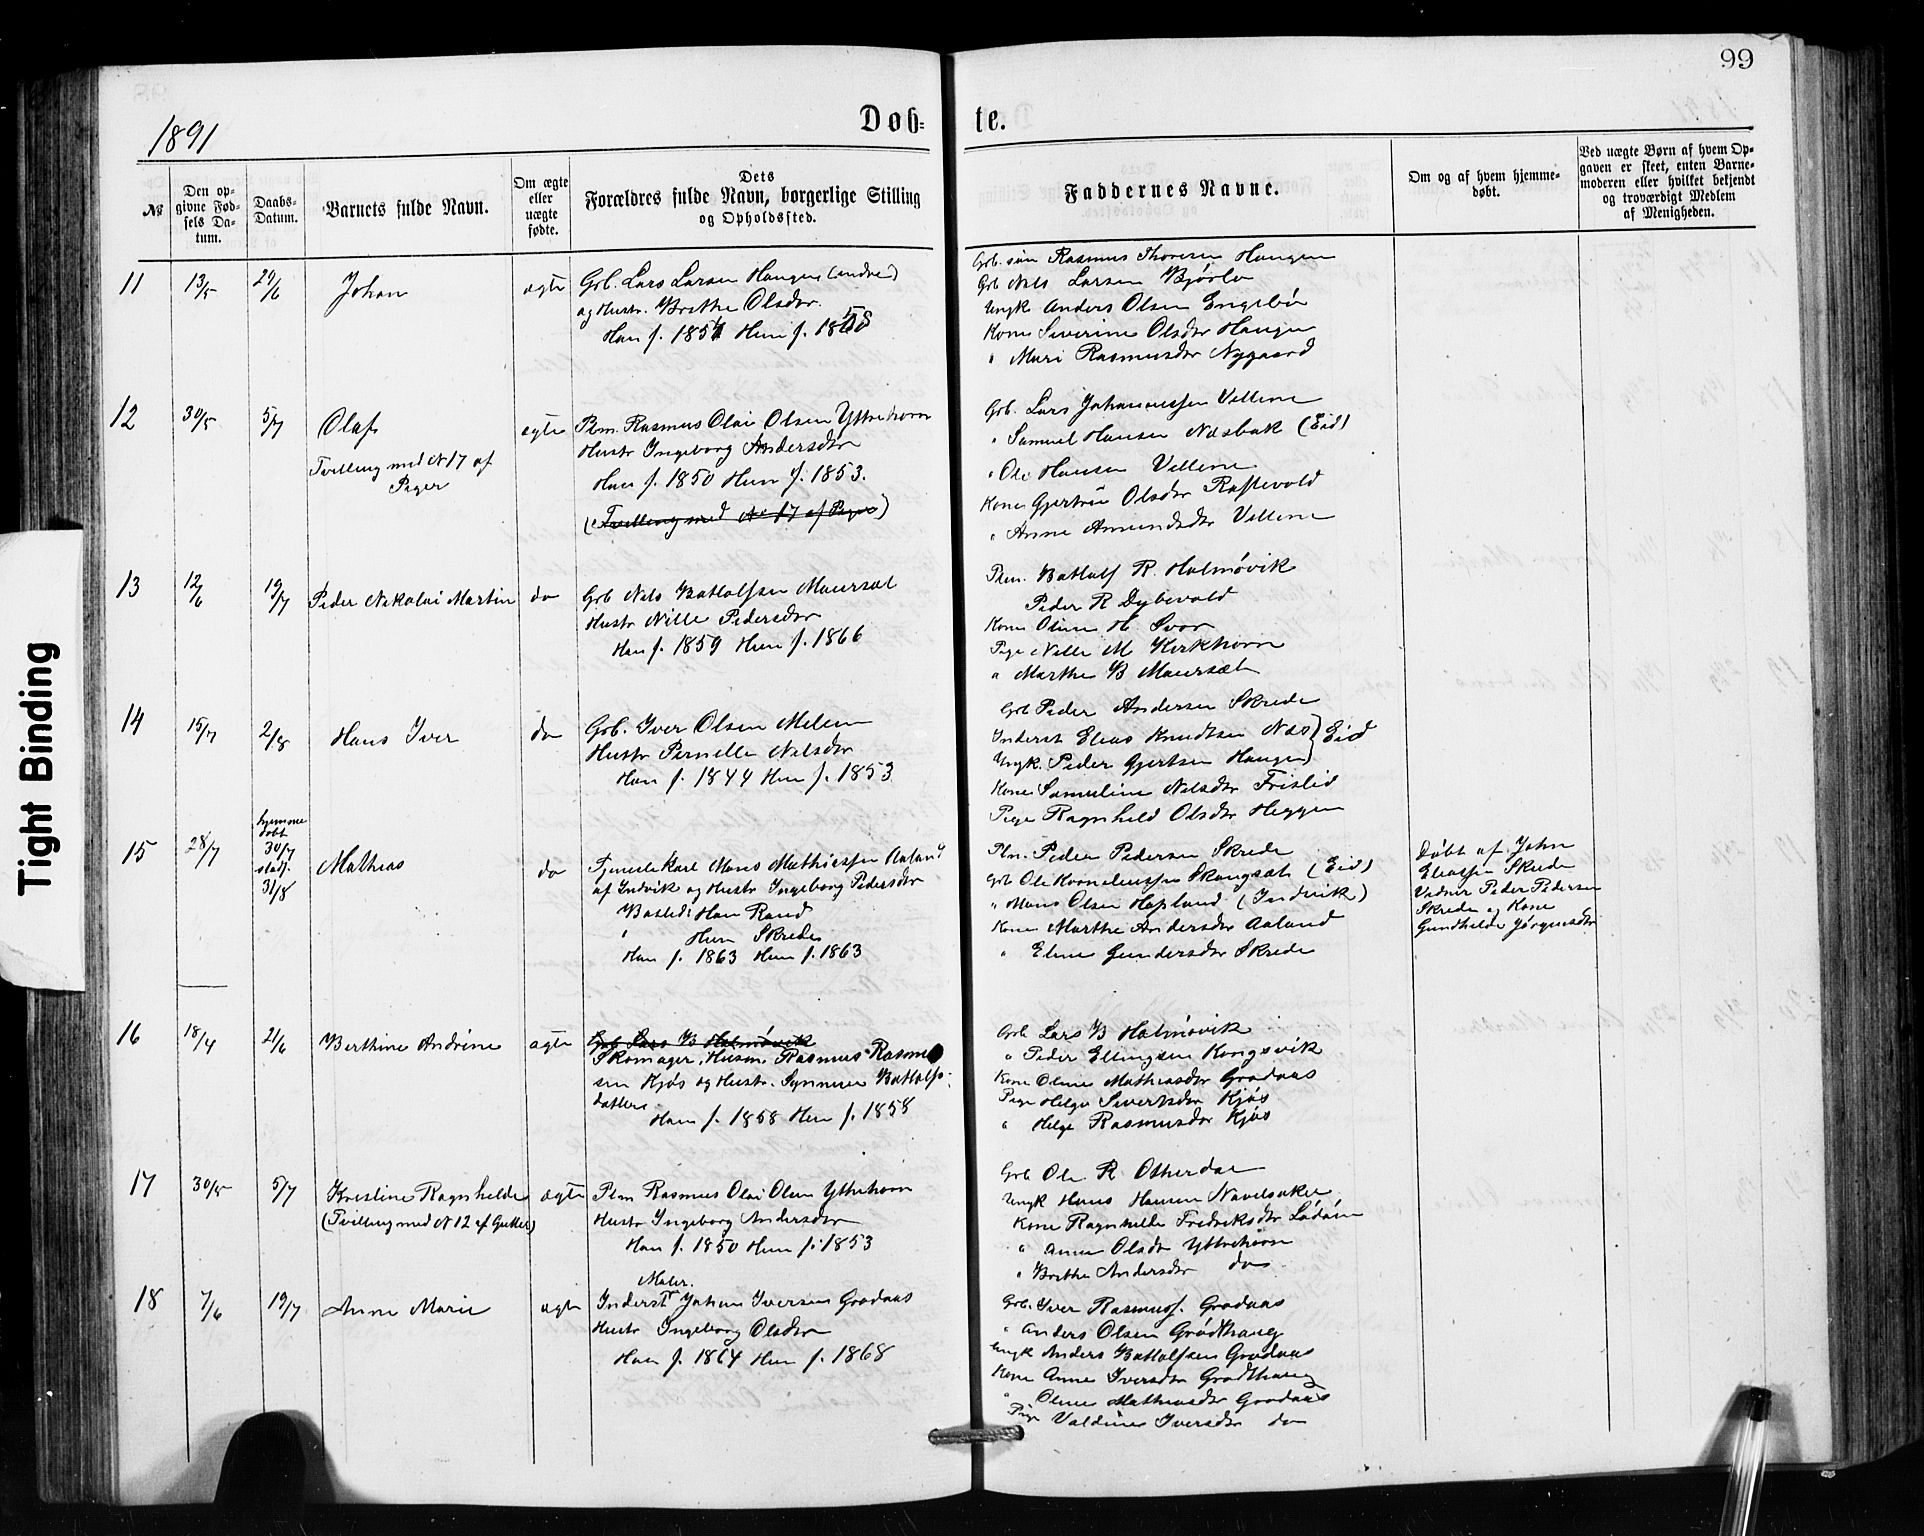 99
1891
Døb-
te.
№
Den op-
givne Fød-
sels Da-
tum.
Daabs-
Datum.
Barnets fulde Navn.
Om ægte
eller
uægte
fødte.
Dets
Forældres fulde Navn, borgerlige Stilling
og Opholdssted.
Faddernes Navne.
Om og af hvem hjemme-
døbt.
Ved uægte Børn af hvem Op-
gaven er skeet, enten Barne-
moderen eller hvilket bekjendt
og troværdigt Medlem
af Menigheden.
11
13/5
29/6
Johan
ægte
Grb. Lars Larsen Haugen (indre)
og Hustr. Brithe Olsdtr.
Han f. 1851 Hun f.
Grb. søn Rasmus Thoresen Haugen
Grb Nils Larsen Bjørlo
Ungk Anders Olsen Engebø
Kone Severine Olsdtr Haugen
" Mari Rasmusdtr Nygaard
12
30/5
5/7
Olaf
Tvilling med N 17 af
Piger
ægte
Plm. Rasmus Olai Olsen Yttrehorn
Hustr Ingeborg Andersdtr
Han f. 1850 Hun f. 1853.
(Tvilling med No 17 af Piger)
Grb. Lars Johannessen Vellene
" Samuel Hansen Nesbak (Eid)
" Ole Hansen Vellene
Kone Gjertrue Olsdtr Raftevold
" Anne Amundsdtr Vellene
13
12/6
19/7
Peder Nikolai Martin
do
Grb Nils Bottolfsen Maursæt
Hustr Nille Pedersdtr
Han f. 1859 Hun f. 1866
Plm. Bottolf R. Holmøvik
Peder R Dybevold
Kone Oline H. Svor
Pige Nille M Kirkhorn
" Marthe B Maursæt
14
15/7
2/8
Hans Iver
do
Grb. Iver Olsen Melem
Hustr Pernelle Nilsdtr
Han f. 1844 Hun f. 1853
Grb Peder Andersen Skrede
Inderst Elias Knudtsen Næs } Eid
Ungk. Peder Gjertsen Haugen
Kone Samueline Nilsdtr Frislid
Pige Ragnhild Olsdtr Heggen
15
28/7
hjemme
døbt
30/7
stadf.
31/8
Mathias
do
Tjenestekarl Mons Mathiassen Aaland
af Indvik og Hustr Ingeborg Pedersdtr
Bosted: Han Rand
" Hun Skrede
Han f. 1863 Hun f. 1863
Plm. Peder Pedersen Skrede
Grb Ole Korneliussen Skongsæt (Eid)
" Mons Olsen Hopland (Indvik)
Kone Marthe Andersdtr Aaland
" Eline Gundersdtr Skrede
Døbt af John
Eliassen Skrede
Vidner Peder Pedersen
Skrede og Kone
Gundhilde Jørgensdtr
16
18/4
21/6
Berthine Andrine
ægte
Grb Lars B Holmøvik
Skomager, Husm. Rasmus Rasmus
sen Kjøs og Hustr. Synneve Bottolfs-
datter
Han f. 1858 Hun f. 1858
Grb Lars B Holmøvik
" Peder Ellingsen Kongsvik
Kone Oline Mathiasdtr Grodaas
Pige Helge Sivertsdtr Kjøs
" Helge Rasmusdtr Kjøs
17
30/5
5/7
Kristine Ragnhilde
(Tvilling med N 12 af Gutter)
ægte
Plm Rasmus Olai Olsen Yttrehorn
Hustr Ingeborg Andersdtr
Han f. 1850 Hun f. 1853
Grb Ole R Otterdal
Ungk Hans Hansen Navelsaker
Kone Ragnhilde Fredriksdtr Lødøin
" Anne Olsdtr Yttrehorn
" Brithe Andersdtr do
18
7/6
19/7
Anne Marie
ægte
Maler.
Inderst Johan Iversen Grodaas
Hustr Ingeborg Olsdtr
Han f. 1864 Hun f. 1868
Grb. Iver Rasmuss. Grodaas
" Anders Olsen Grodthaug
Ungk Anders Bottolfsen Grodaas
Kone Anne Iversdtr Grodthaug
" Oline Mathiasdtr Grodaas
Pige Valdine Iversdtr do
Tight Binding